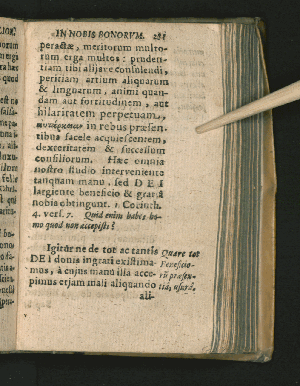 IN NOBIS BONORUM. 281
peractæ, meritorum multo-
rum erga multos: pruden-
tiam tibi aliisve consulendi,
peritiam artium aliquarum
& linguarum, animi quan-
dam aut fortitudinem, aut
hilaritatem perpetuam,
in rebus præsen-
tibus facile acquiescentem,
dexteritatem & successum
consiliorum. Hæc omnia
nostro studio interveniente
tanquam manu, sed DEI
largiente beneficio & gratiâ
nobis obtingunt. 1. Corinth.
4. vers. 7. Quid enim habes ho-
mo quod non accepisti?
Igitur ne de tot ac tantis
DEI donis ingrati existima-
mus, à cujus manu illa acce-
pimus etjam mali aliquando
ali-
Quare tot
beneficio-
rū præsen-
tiâ,